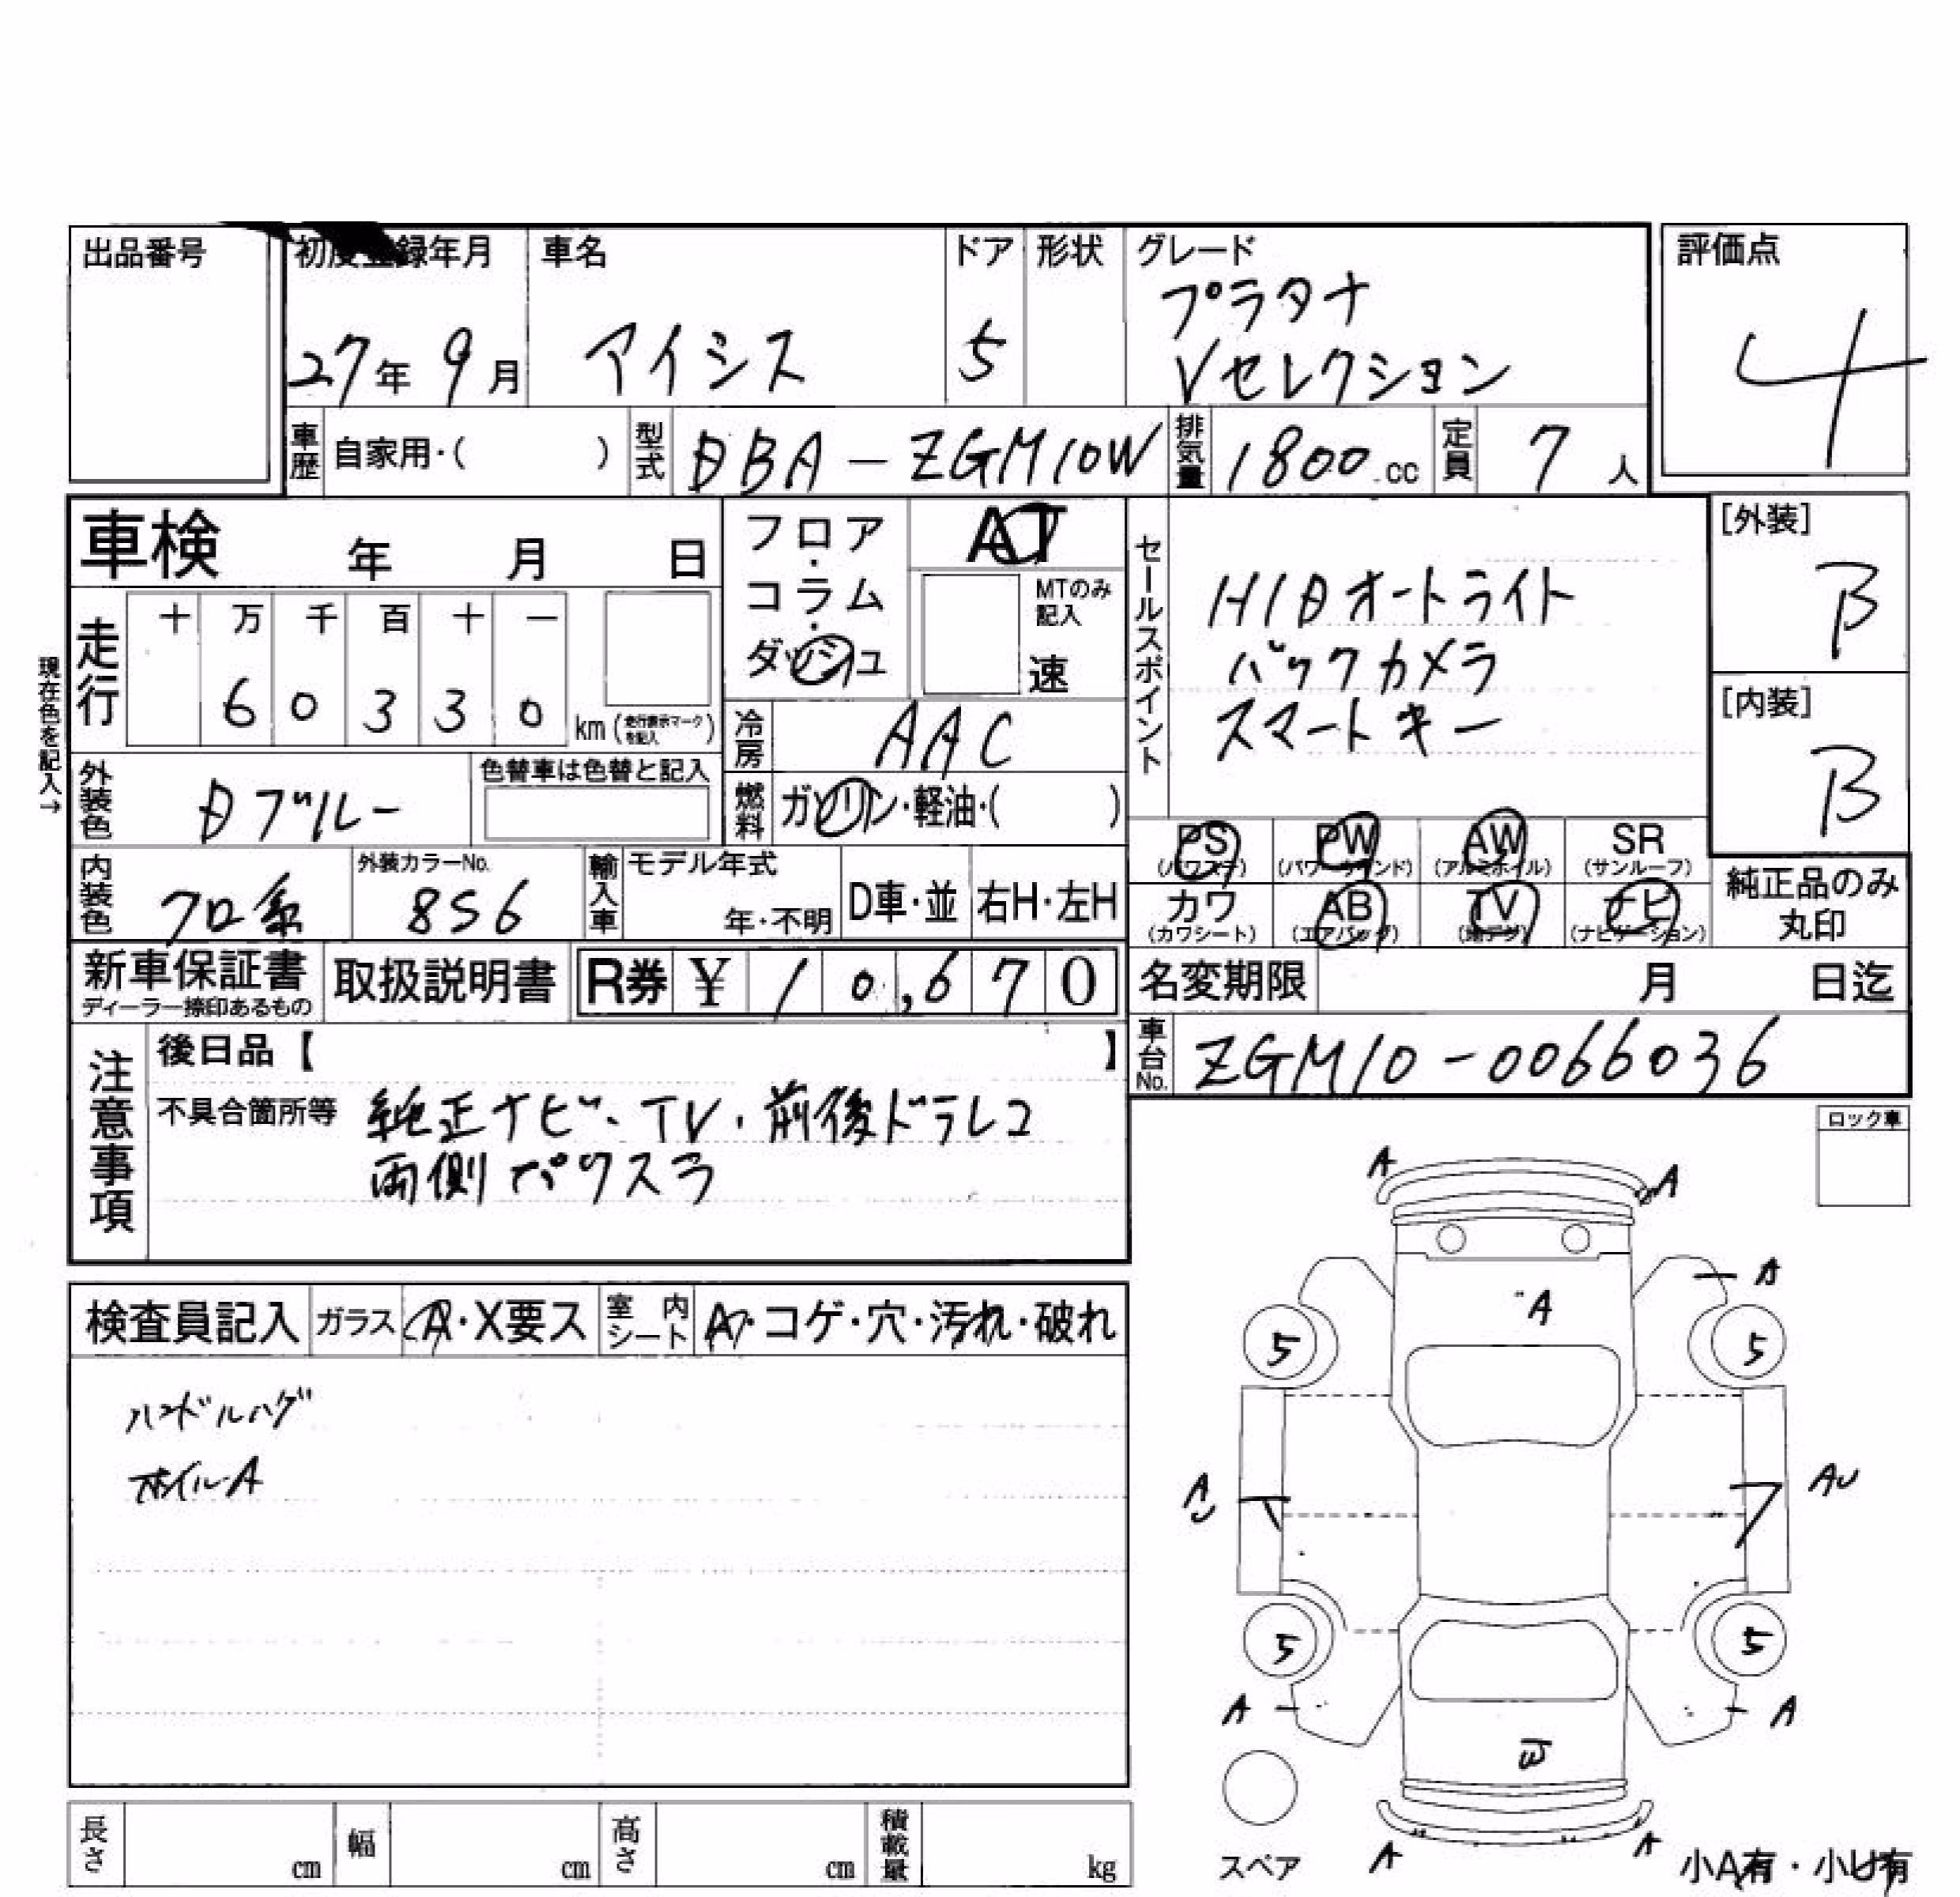 出品番号
初度登録年月 車名 ドア 形状 グレード 評価点
プラタナ
27年 9月 アイシス 5 Vセレクション 4
車歴 自家用・( ) 型式 DBA-ZGM10W 排気量 1800.cc 定員 7人
車検 年 月 日
フロア・コラム・ダッシュ AT
MTのみ記入 速
走行 十 万 千 百 十 一
6 0 3 3 0 km (走行表示マークを記入)
現在色を記入→
冷房 AAC
外装色 Dブルー 色替車は色替と記入
燃料 ガソリン・軽油・( )
内装色 クロ系 外装カラーNo. 8S6 輸入車 モデル年式 年・不明 D車・並 右H・左H
セールスポイント
HIDオートライト
バックカメラ
スマートキー
[外装] B
[内装] B
PS (パワステ) PW (パワーウインド) AW (アルミホイル) SR (サンルーフ)
カワ (カワシート) AB (エアバッグ) TV (地デジ) ナビ (ナビゲーション)
純正品のみ丸印
新車保証書 ディーラー捺印あるもの 取扱説明書 R券 ¥ 10,670
名変期限 月 日迄
車台No. ZGM10-0066036
注意事項
後日品【 】
不具合箇所等 純正ナビ・TV・前後ドラレコ
両側パワスラ
ロック車
検査員記入 ガラス A・X要ス 室内シート A・コゲ・穴・汚れ・破れ
ハンドルハゲ
ホイルA
A A
A
A
5 5
A AU
5 5
A A
A A
スペア
小A有・小U有
長さ cm 幅 cm 高さ cm 積載量 kg